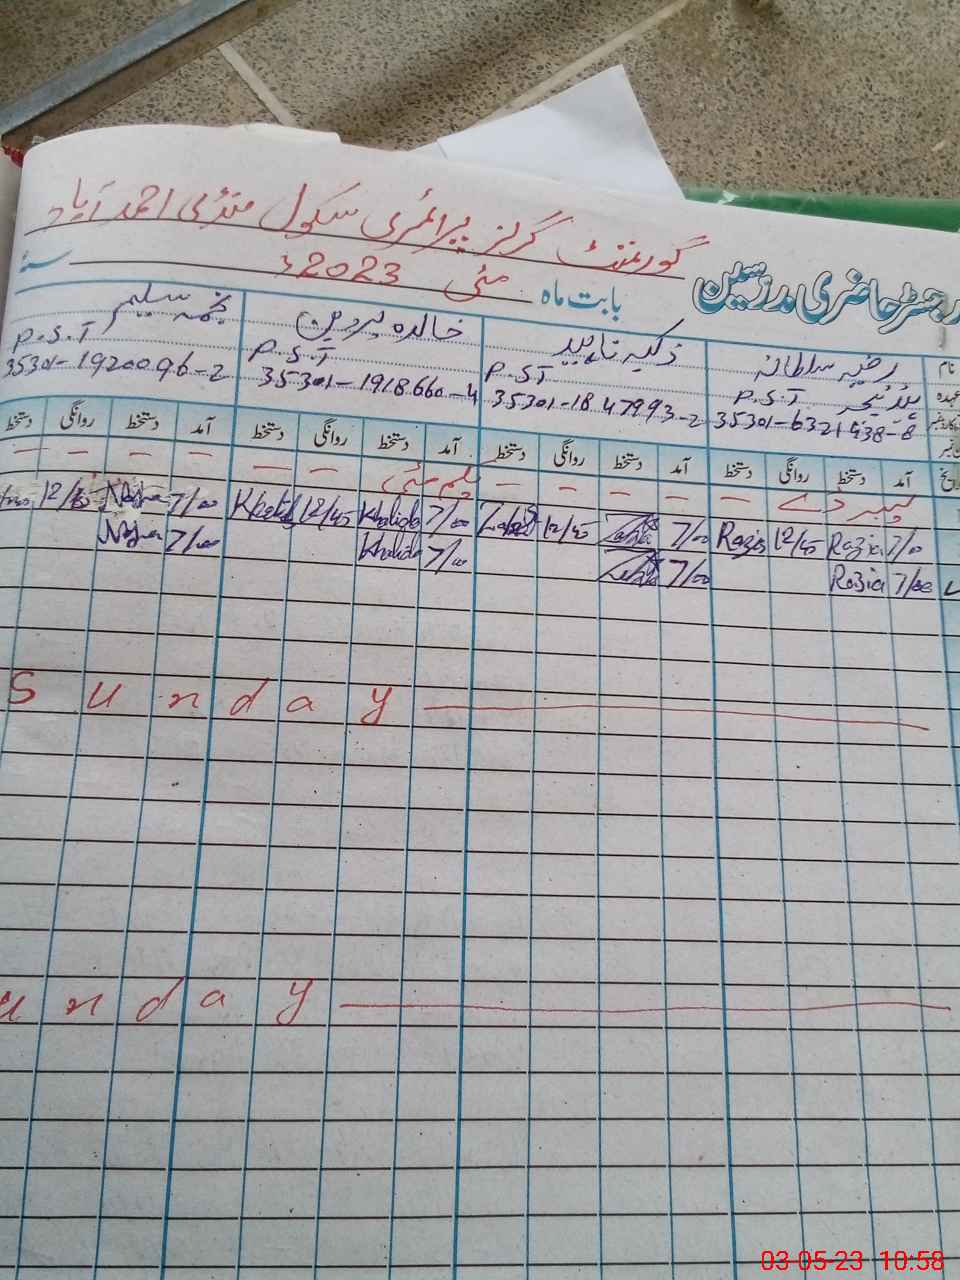 گورنمنٹ گرلز پرائمری سکول منڈی احمد آباد
رجسٹر حاضری مدرسین بابت ماہ مئی 2023ء سنہ
نام رضیہ سلطانہ ذکیہ ناہید خالدہ پروین نجمہ سلیم
عہدہ ہیڈ ٹیچر P.S.T P.S.T P.S.T P.S.T
35301-6321438-8 35301-1847993-2 35301-1918660-4 35301-1920096-2
آمد دستخط روانگی دستخط آمد دستخط روانگی دستخط آمد دستخط روانگی دستخط آمد دستخط روانگی دستخط
یکم مئی لیبر ڈے
7/00 Razia 12/45 Razia 7/00 12/45 7/00 Khalida 12/45 Khalid 7/00 Najma 12/45
7/00 Razia 7/00 7/00 Khalida 7/00 Najma
Sunday
unday
03-05-23 10:58